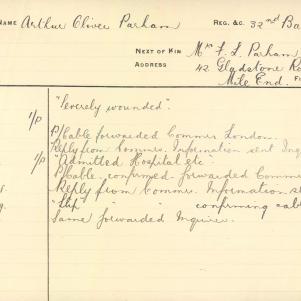 NAME Arthur Oliver Parham REG. &C. 32nd Ba
NEXT OF KIN Mrs F. L. Parham
ADDRESS 42 Gladstone Ro
Mile End.
"Severely wounded".
I/P
P/Cable forwarded Commrs London.
Reply from Commrs. Information sent Inq
I/P "Admitted Hospital etc"
P/Cable confirmed forwarded Comm
Reply from Commr. Information s
" " " confirming cab
Same forwarded Inquirer.